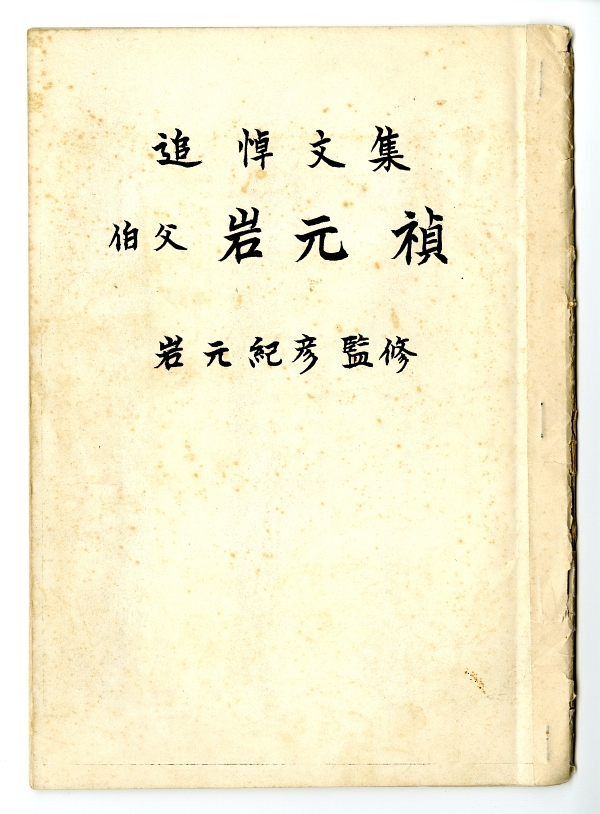 追悼文集
伯父 岩元 禎
岩元紀彦監修